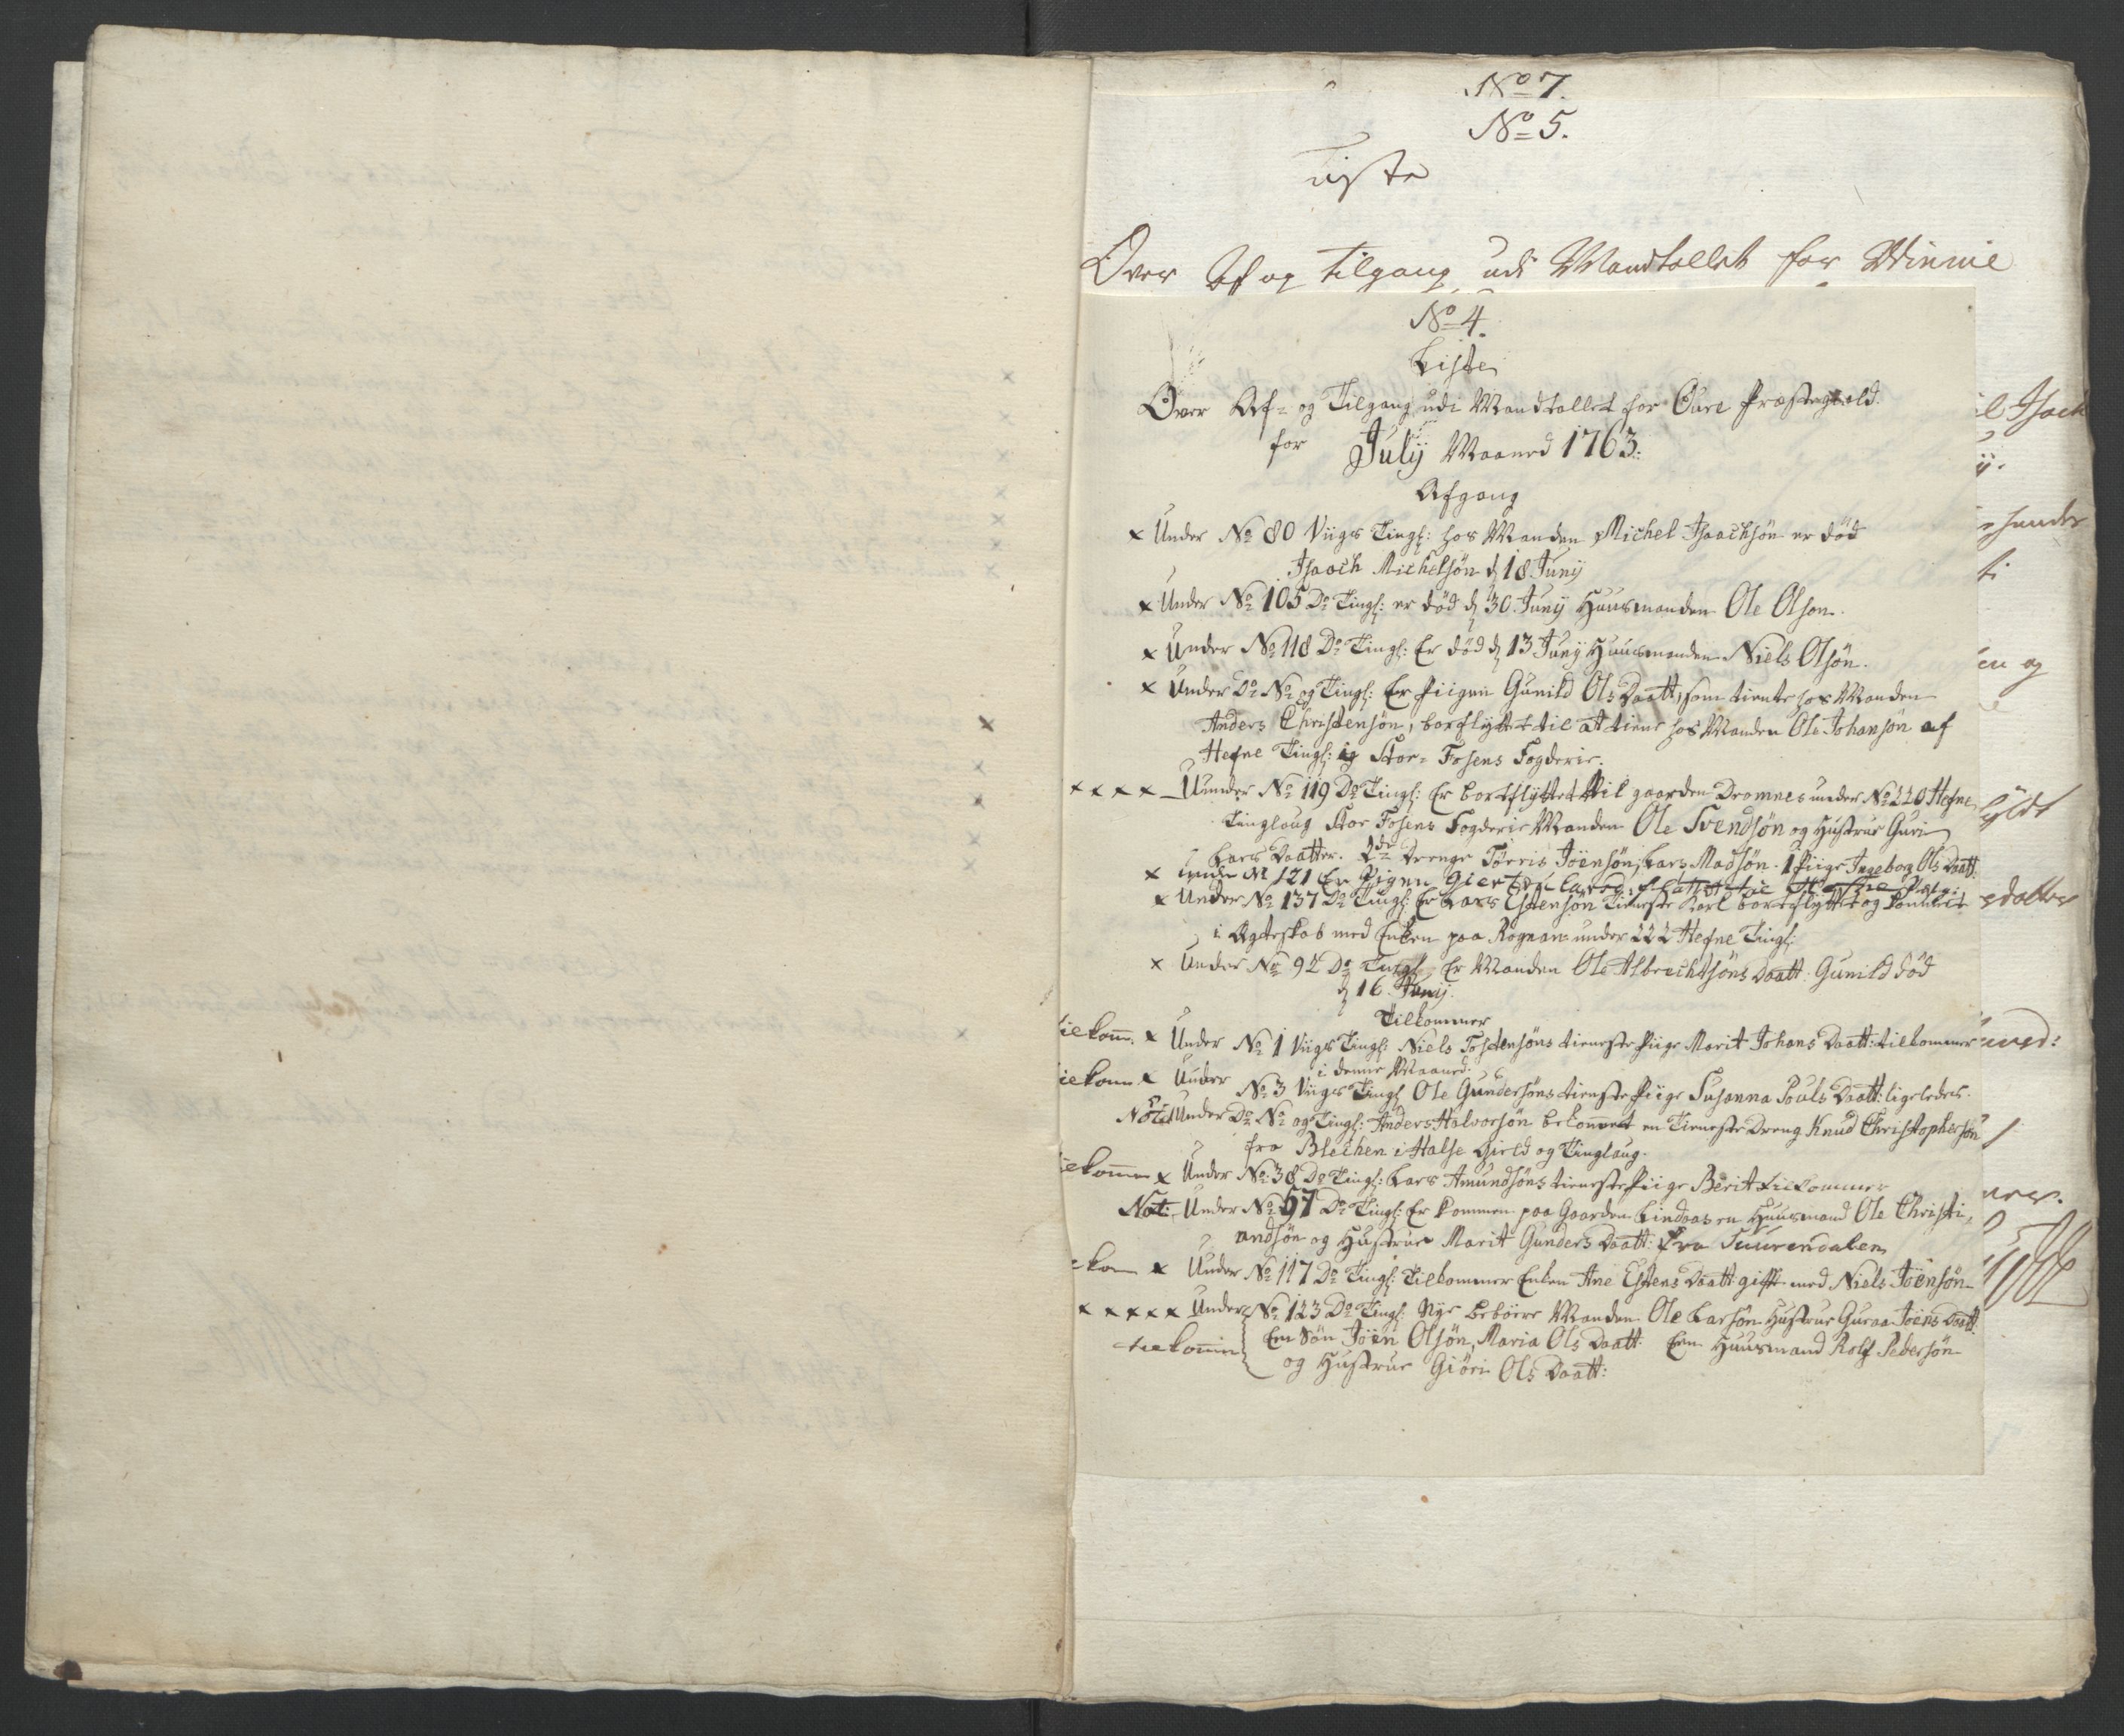 No 7.
No 5.
Liste
Over Af og Tilgang udi Mandtallet for
No 4.
Liste
Over Af- og Tilgang udi Mandtallet for Øure Præstegield
for July Maaned 1763.
Afgang
x Under No 80 Viigs Tingl: hos Manden Michel Isaachsøn er død
Isaach Michelsøn d 18 Juny
x Under No 105 Do Tingl: er død d 30 Juny Huusmanden Ole Olson.
x Under No 118 Do Tingl: Er død d 13 Juny Huusmanden Niels Olsøn.
x Under Do No og Tingl: Er Piigen Gunild Ols Daatt, som tiente hos Manden
Anders Christensøn, bortflyttet til at tiene hos Manden Ole Johansøn af
Hefne Tingl: ig Stor-Fosens Fogderie.
x x x x Uunder No 119 Do Tingl: Er bortflyttet til gaarden Dromnes under No 220 Hefne
Tinglaug Stor Fosens Fogderie Manden Ole Svendsøn og Hustrue Guri
Lars Daatter. 2de Drenge Tørris Joensøn, Lars Madsøn. 1 Piige Ingeborg Ols Daatt:
x under No 121 Er Pigen
x Under No 137 Do Tingl: Er Lars Estensøn Tieneste Karl bortflyttet og kommet
i Ægteskab med Enken paa Rognan under 222 Hefne Tingl:
x Under No 92 Do Tingl: Er Manden Ole Albrechtsøns Daatt: Gunild død
d 16. Juny.
Tilkommer
x Under No 1 Viigs Tingl: Niels Tostensøns tieneste Piige Marit Johans Daatt: tilkommer
i denne Maaned.
x Under No 3 Viigs Tingl Ole Gundersøns tieneste Piige Susanna Pouls Daatt: ligeledes.
Not: Under Do No og Tingl: Anders Halvorsøn bekommet en Tieneste Dreng Knud Christophersøn
fra Blechen i Halse Gield og Tinglaug.
x Under No 38 Do Tingl: Lars Amundsøns tieneste Piige Berit tilkommer
Not: Under No 67 Do Tingl: Er kommen paa Gaarden Lindaas en Huusmand Ole Christi-
andsøn og Hustrue Marit Gunders Daatt: fra Suurendalen
x Under No 117 Do Tingl: Tilkommer Enken Ane Estens Daatt gifft med Niels Joensøn
x x x x x Under No 123 Do Tingl: Nye beboere Manden Ole Larsøn Hustrue Guraa Joens Daatt:
tilkomm Een Søn Joen Olsøn, Maria Ols Daatt: Een Huusmand Rolf Pedersøn
og Hustrue Giøri Ols Daatt: